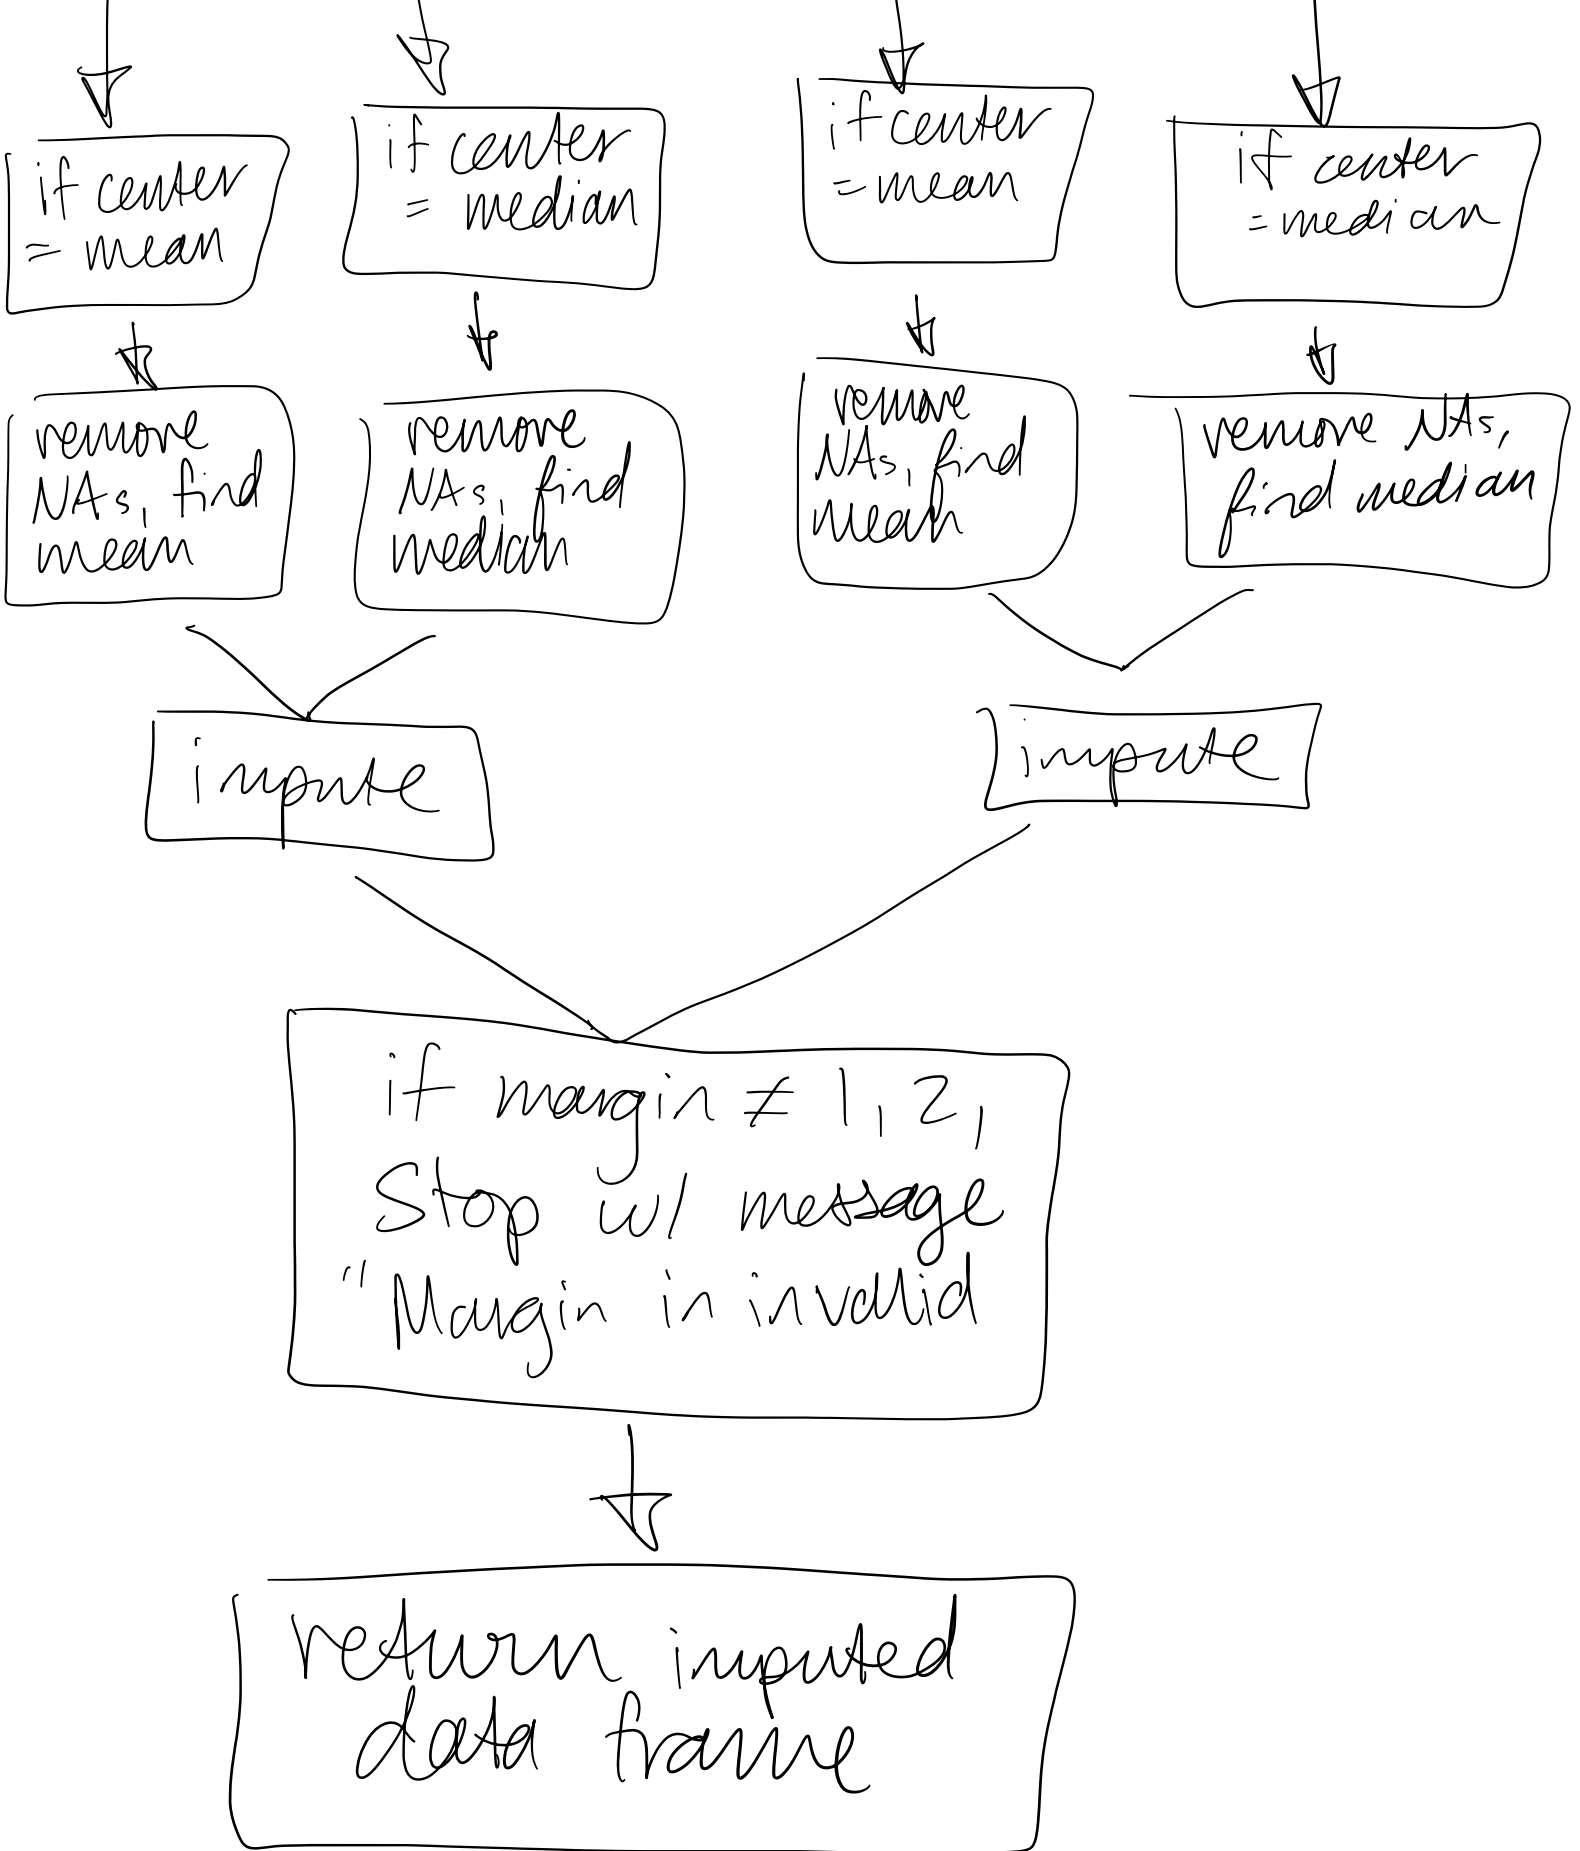 if center
= mean
if center
= median
if center
= mean
if center
= median
remove
NAs, find
mean
remove
NAs, find
median
remove
NAs, find
mean
remove NAs,
find median
impute
impute
if margin ≠ 1, 2,
Stop w/ message
"Margin in invalid
return imputed
data frame